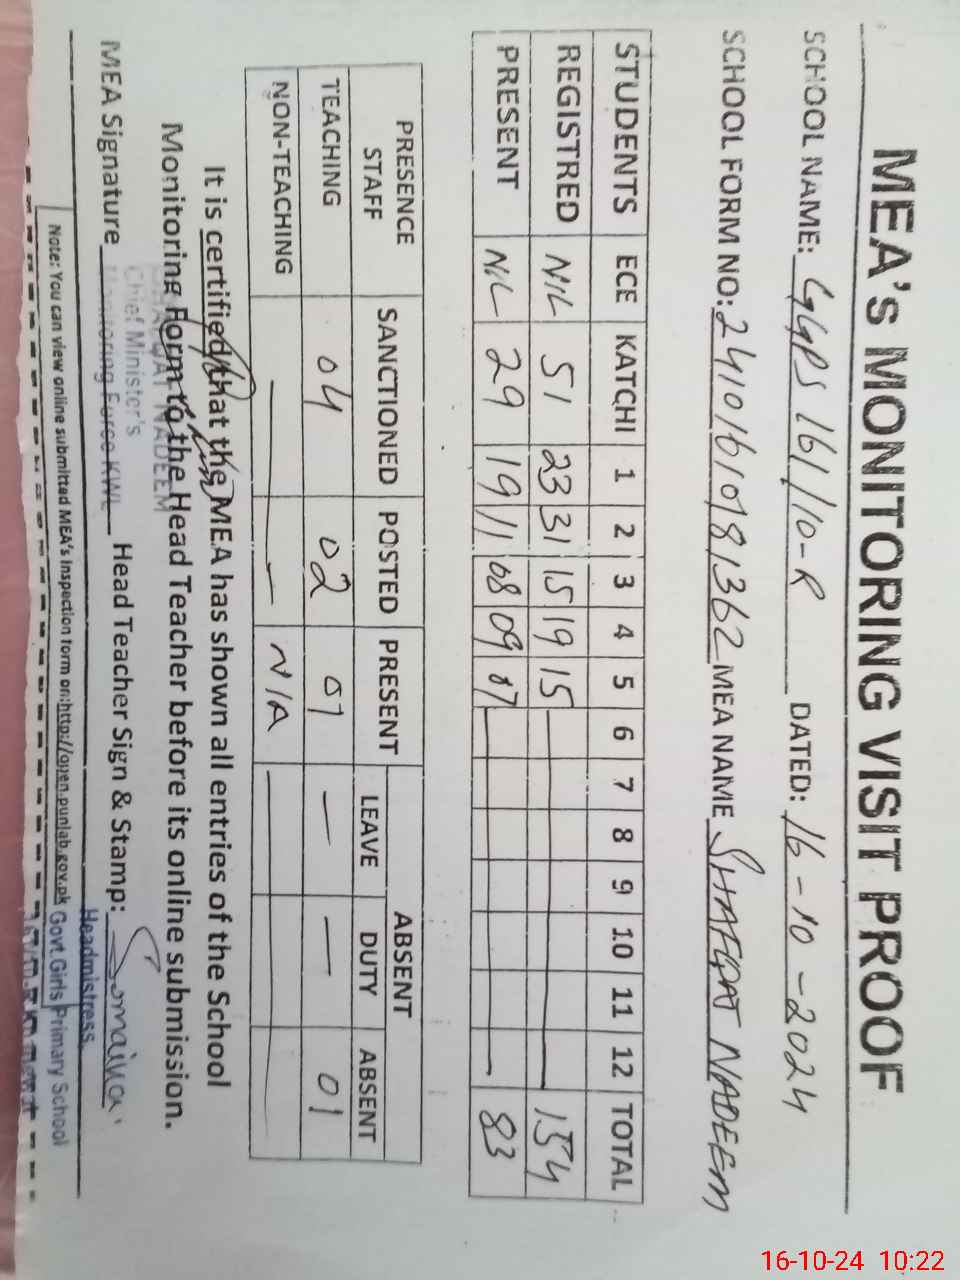 MEA's MONITORING VISIT PROOF
SCHOOL NAME: GGPS 161/10-R DATED: 16-10-2024
SCHOOL FORM NO: 24101610781362 MEA NAME SHAFQAT NADEEM
STUDENTS ECE KATCHI 1 2 3 4 5 6 7 8 9 10 11 12 TOTAL
REGISTRED NIL 51 23 31 15 19 15 154
PRESENT NIL 29 19 11 08 09 07 83
PRESENCE STAFF SANCTIONED POSTED PRESENT ABSENT
LEAVE DUTY ABSENT
TEACHING 04 02 01 — — 01
NON-TEACHING — — N/A
It is certified that the MEA has shown all entries of the School
Monitoring Form to the Head Teacher before its online submission.
SHAFQAT NADEEM
Chief Minister's
Monitoring Force KWL
MEA Signature Head Teacher Sign & Stamp: Somaiya
Headmistress
Govt. Girls Primary School
Note: You can view online submitted MEA's Inspection form on:http://open.punjab.gov.pk
16-10-24 10:22